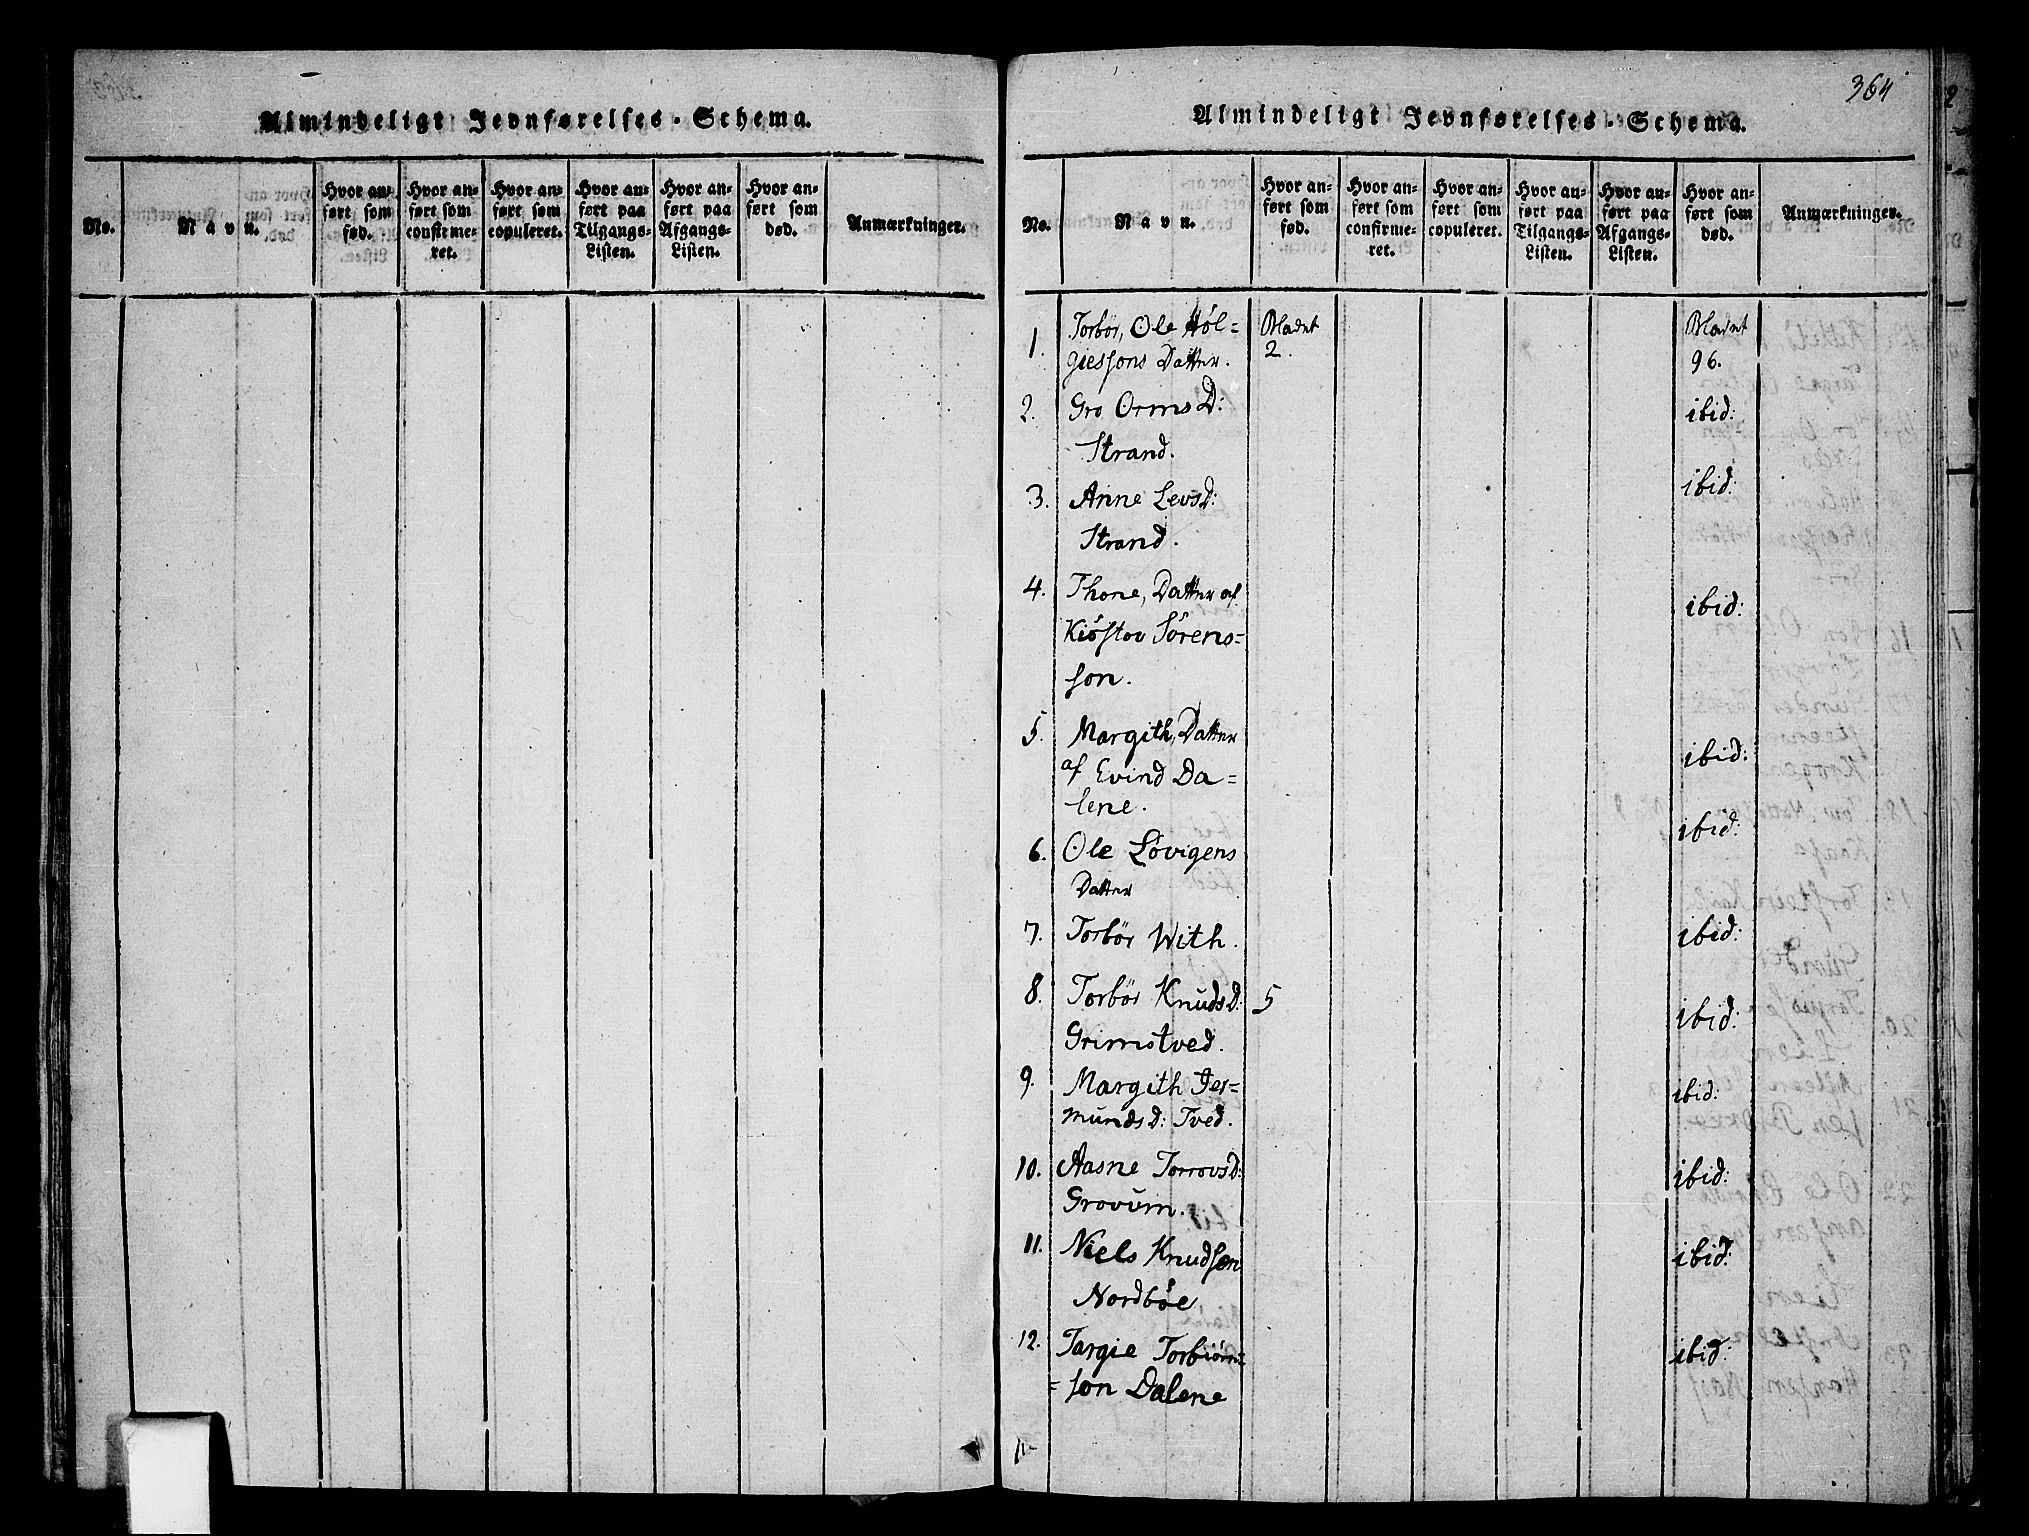 Almindeligt Jevnførelses-Schema.
No.
Navn.
Hvor an-
ført som
fød.
Hvor an-
ført som
confirme-
ret.
Hvor an-
ført som
copuleret.
Hvor an-
ført paa
Tilgangs-
Listen.
Hvor an-
ført paa
Afgangs-
Listen.
Hvor an-
ført som
død.
Anmærkninger.
364
Almindeligt Jevnførelses-Schema.
No.
Navn.
Hvor an-
ført som
fød.
Hvor an-
ført som
confirme-
ret.
Hvor an-
ført som
copuleret.
Hvor an-
ført paa
Tilgangs-
Listen.
Hvor an-
ført paa
Afgangs-
Listen.
Hvor an-
ført som
død.
Anmærkninger.
1. Torbör, Ole Höl= Bladet Bladet
giessons Datter. 2. 96.
2. Gro Orms D: ibid:
Strand.
3. Anne Levsd: ibid:
Strand.
4. Thone, Datter af ibid:
Kiöstov Sörens=
son.
5. Margith, Datter ibid:
af Evind Da=
lene.
6. Ole Lövigens ibid:
Datter
7. Torbör With. ibid:
8. Torbör Knudsd: 5 ibid:
Grimstved.
9. Margith Jer= ibid:
mundsd: Tved.
10. Aasne Torrovsd: ibid:
Grovum.
11. Niels Knudsen ibid:
Nordböe
12. Targie Torbiörn= ibid:
=son Dalene